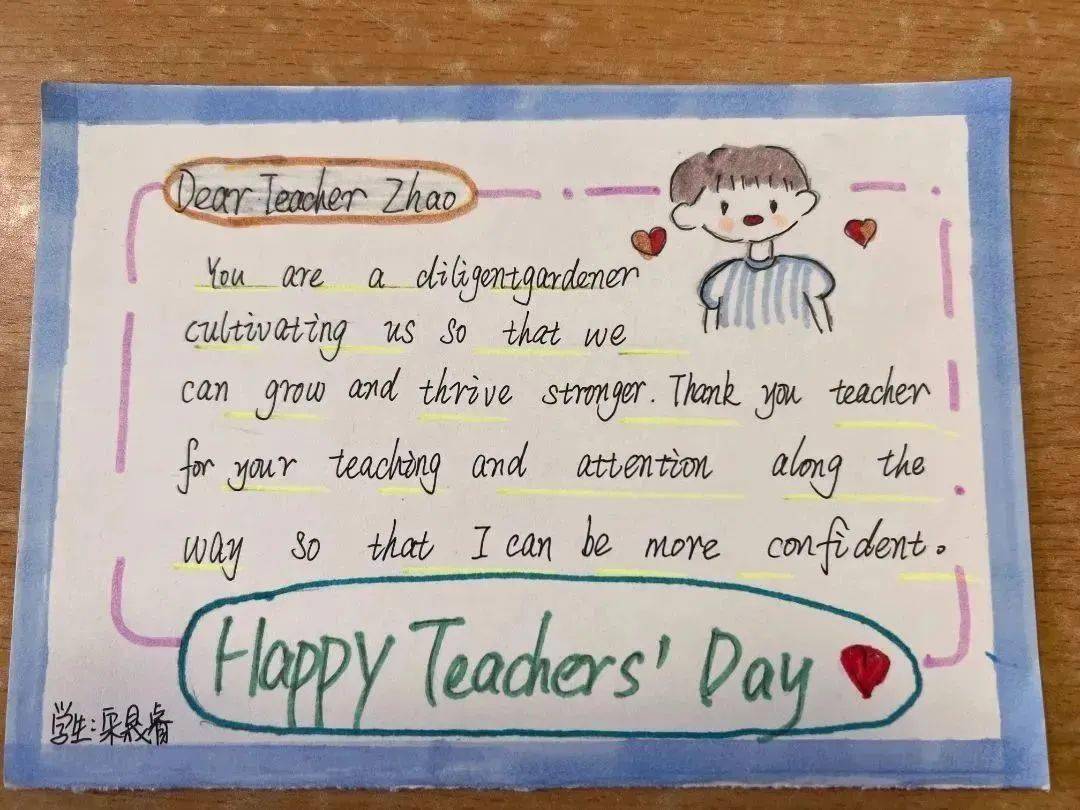 Dear Teacher Zhao
You are a diligentgardener
cultivating us so that we
can grow and thrive stronger. Thank you teacher
for your teaching and attention along the
way so that I can be more confident.
Happy Teachers' Day
学生:采晟睿